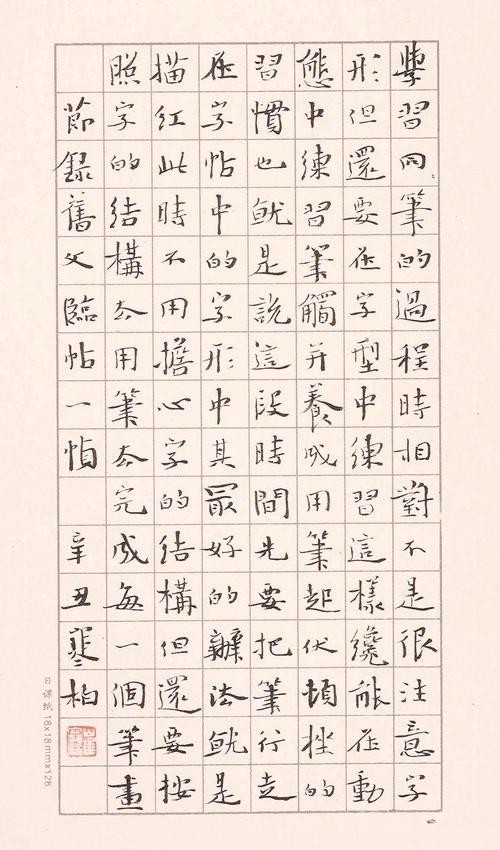 學習同筆的過程時相對不是很注意字
形但還要在字型中練習這樣纔能在動
態中練習筆觸并養成用筆起伏頓挫的
習慣也就是說這段時間先要把筆行走
在字帖中的字形中其最好的辦法就是
描紅此時不用擔心字的結構但還要按
照字的結構去用筆去完成每一個筆畫
節錄舊文臨帖一幀 辛丑 柏
日课纸 18x18mmx128